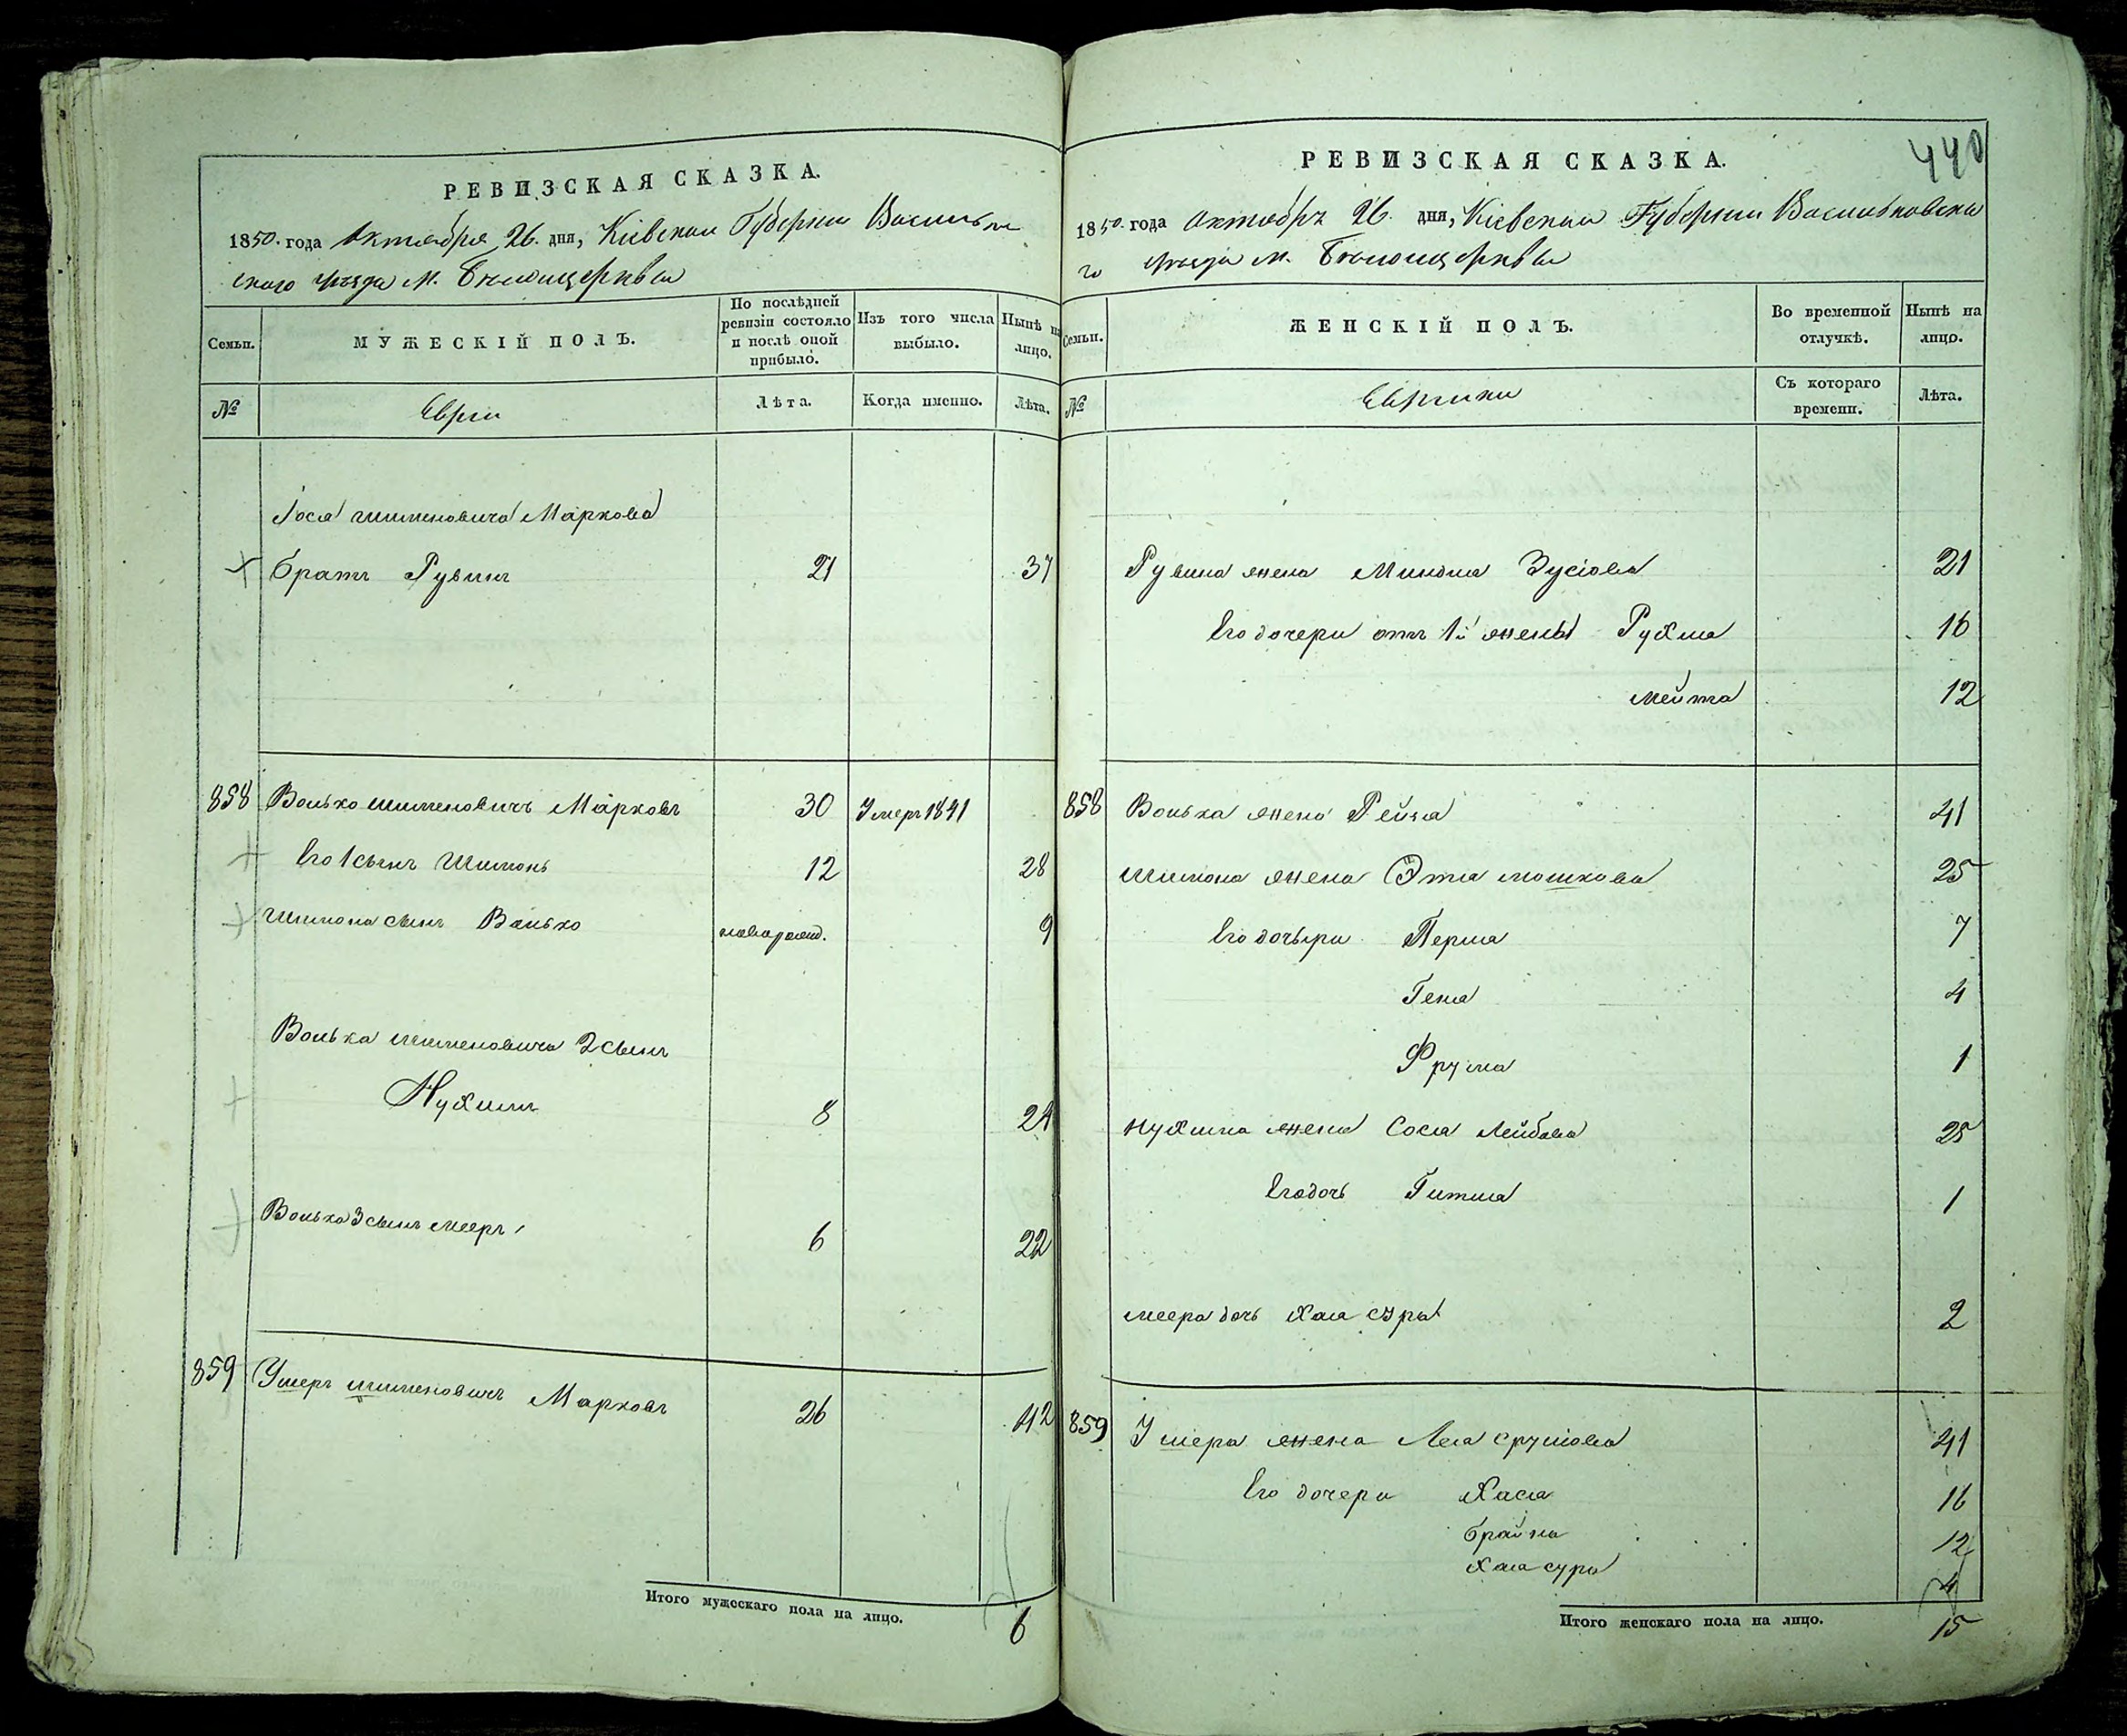 РЕВИЗСКАЯ СКАЗКА.
1850. года Октября 26. дня, Кіевской Губерніи Васильков
ского уѣзда м. Бѣлоцеркви
Семьи.
МУЖЕСКІЙ ПОЛЪ.
По послѣдней ревизіи состояло и послѣ оной прибыло.
Изъ того числа выбыло.
Нынѣ на лицо.
№
Евреи
Лѣта.
Когда именно.
Лѣта.
Іося Шименовича Маркова
братъ Рувинъ 21 37
858 Волько Шименовичъ Марковъ 30 Умеръ 1841
Его 1 сынъ Шимонъ 12 28
Шимона сынъ Волько новорожд. 9
Волька Шименовича 2 сынъ
Нухимъ 8 24
Волька 3 сынъ Мееръ 6 22
859 Ушеръ Шименовичъ Марковъ 26 42
Итого мужескаго пола на лицо. 6
440
РЕВИЗСКАЯ СКАЗКА.
1850. года Октября 26. дня, Кіевской Губерніи Васильковска
го уѣзда м. Бѣлоцеркви
Семьи.
ЖЕНСКІЙ ПОЛЪ.
Во временной отлучкѣ.
Нынѣ на лицо.
№
Еврейки
Съ котораго времени.
Лѣта.
Рувина жена Миндля Зусіова 21
Его дочери отъ 1й жены Рухля 16
Мейта 12
858 Волька жена Рейза 41
Шимона жена Этя Мошкова 25
Его дочери Перля 7
Геня 4
Фрума 1
Нухима жена Сося Лейбова 25
Его дочь Гитля 1
Меера дочь Хая Сура 2
859 Ушера жена Лея Срулiова 41
Его дочери Хася 16
Брайна 12
Хая Сура 4
Итого женскаго пола на лицо. 15